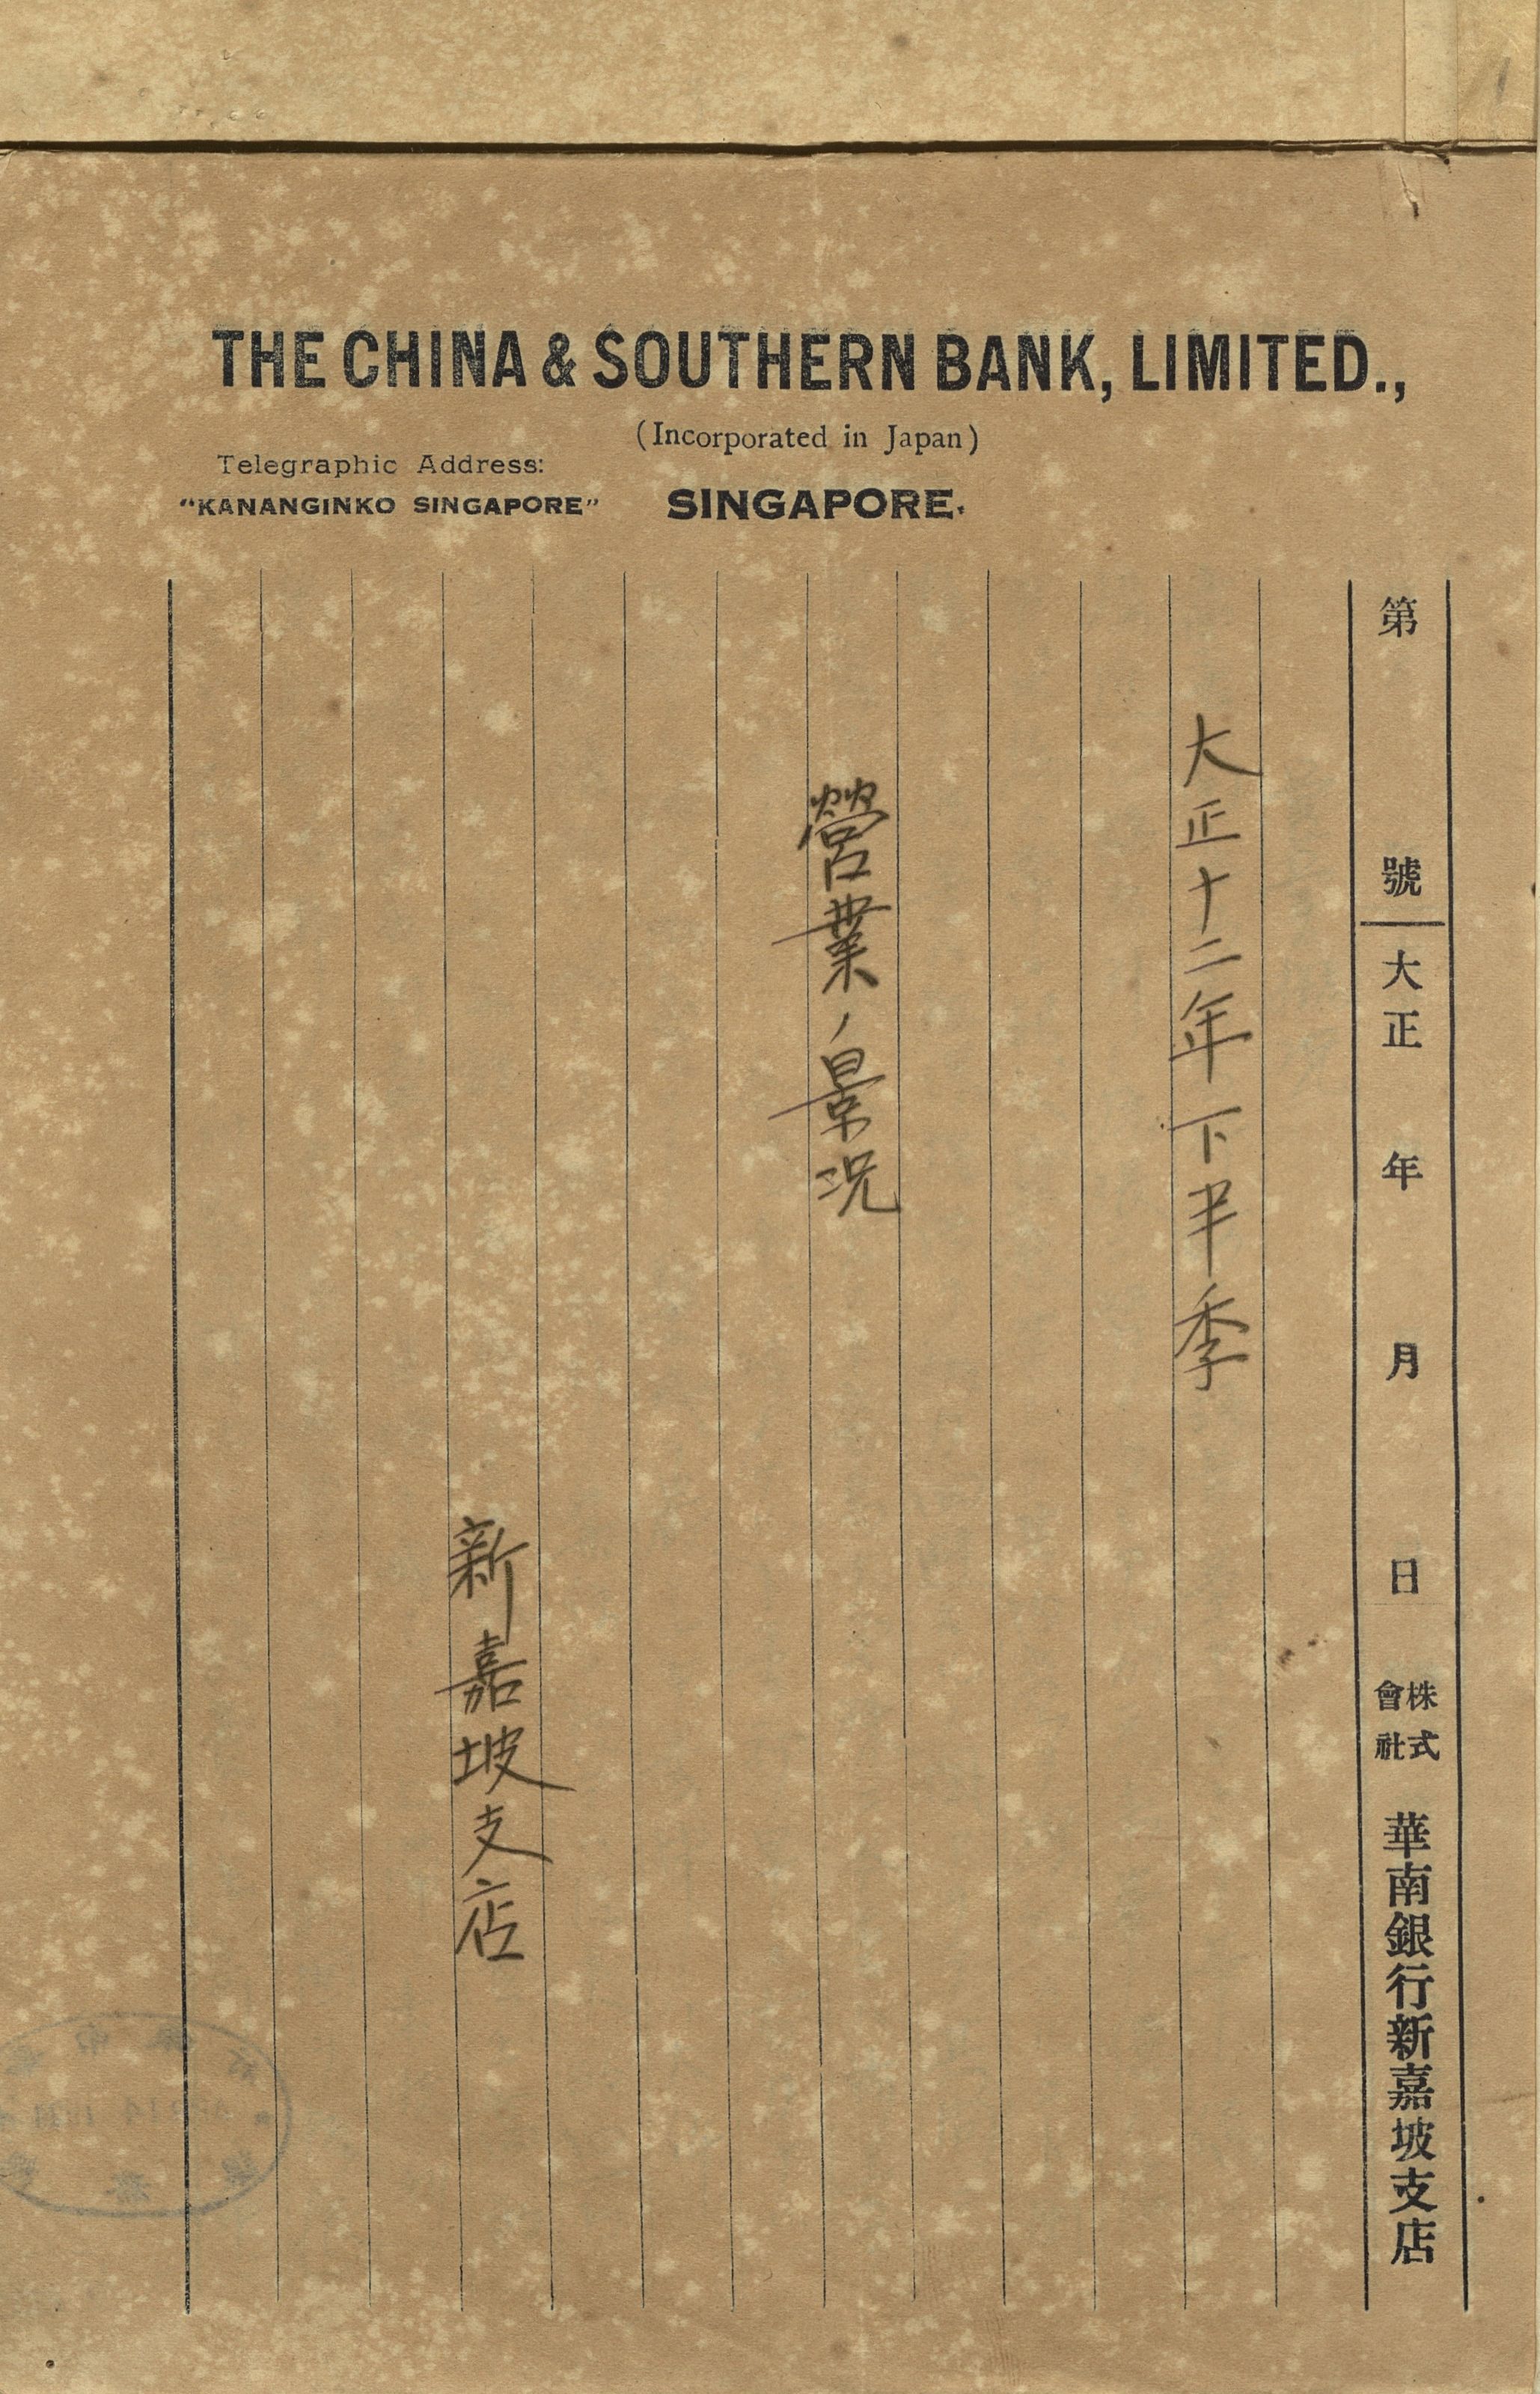 THE CHINA & SOUTHERN BANK, LIMITED.,
(Incorporated in Japan)
Telegraphic Address:
"KANANGINKO SINGAPORE"
SINGAPORE.
第 號 大正 年 月 日 株式會社 華南銀行新嘉坡支店
大正十二年下半季
營業ノ景况
新嘉坡支店